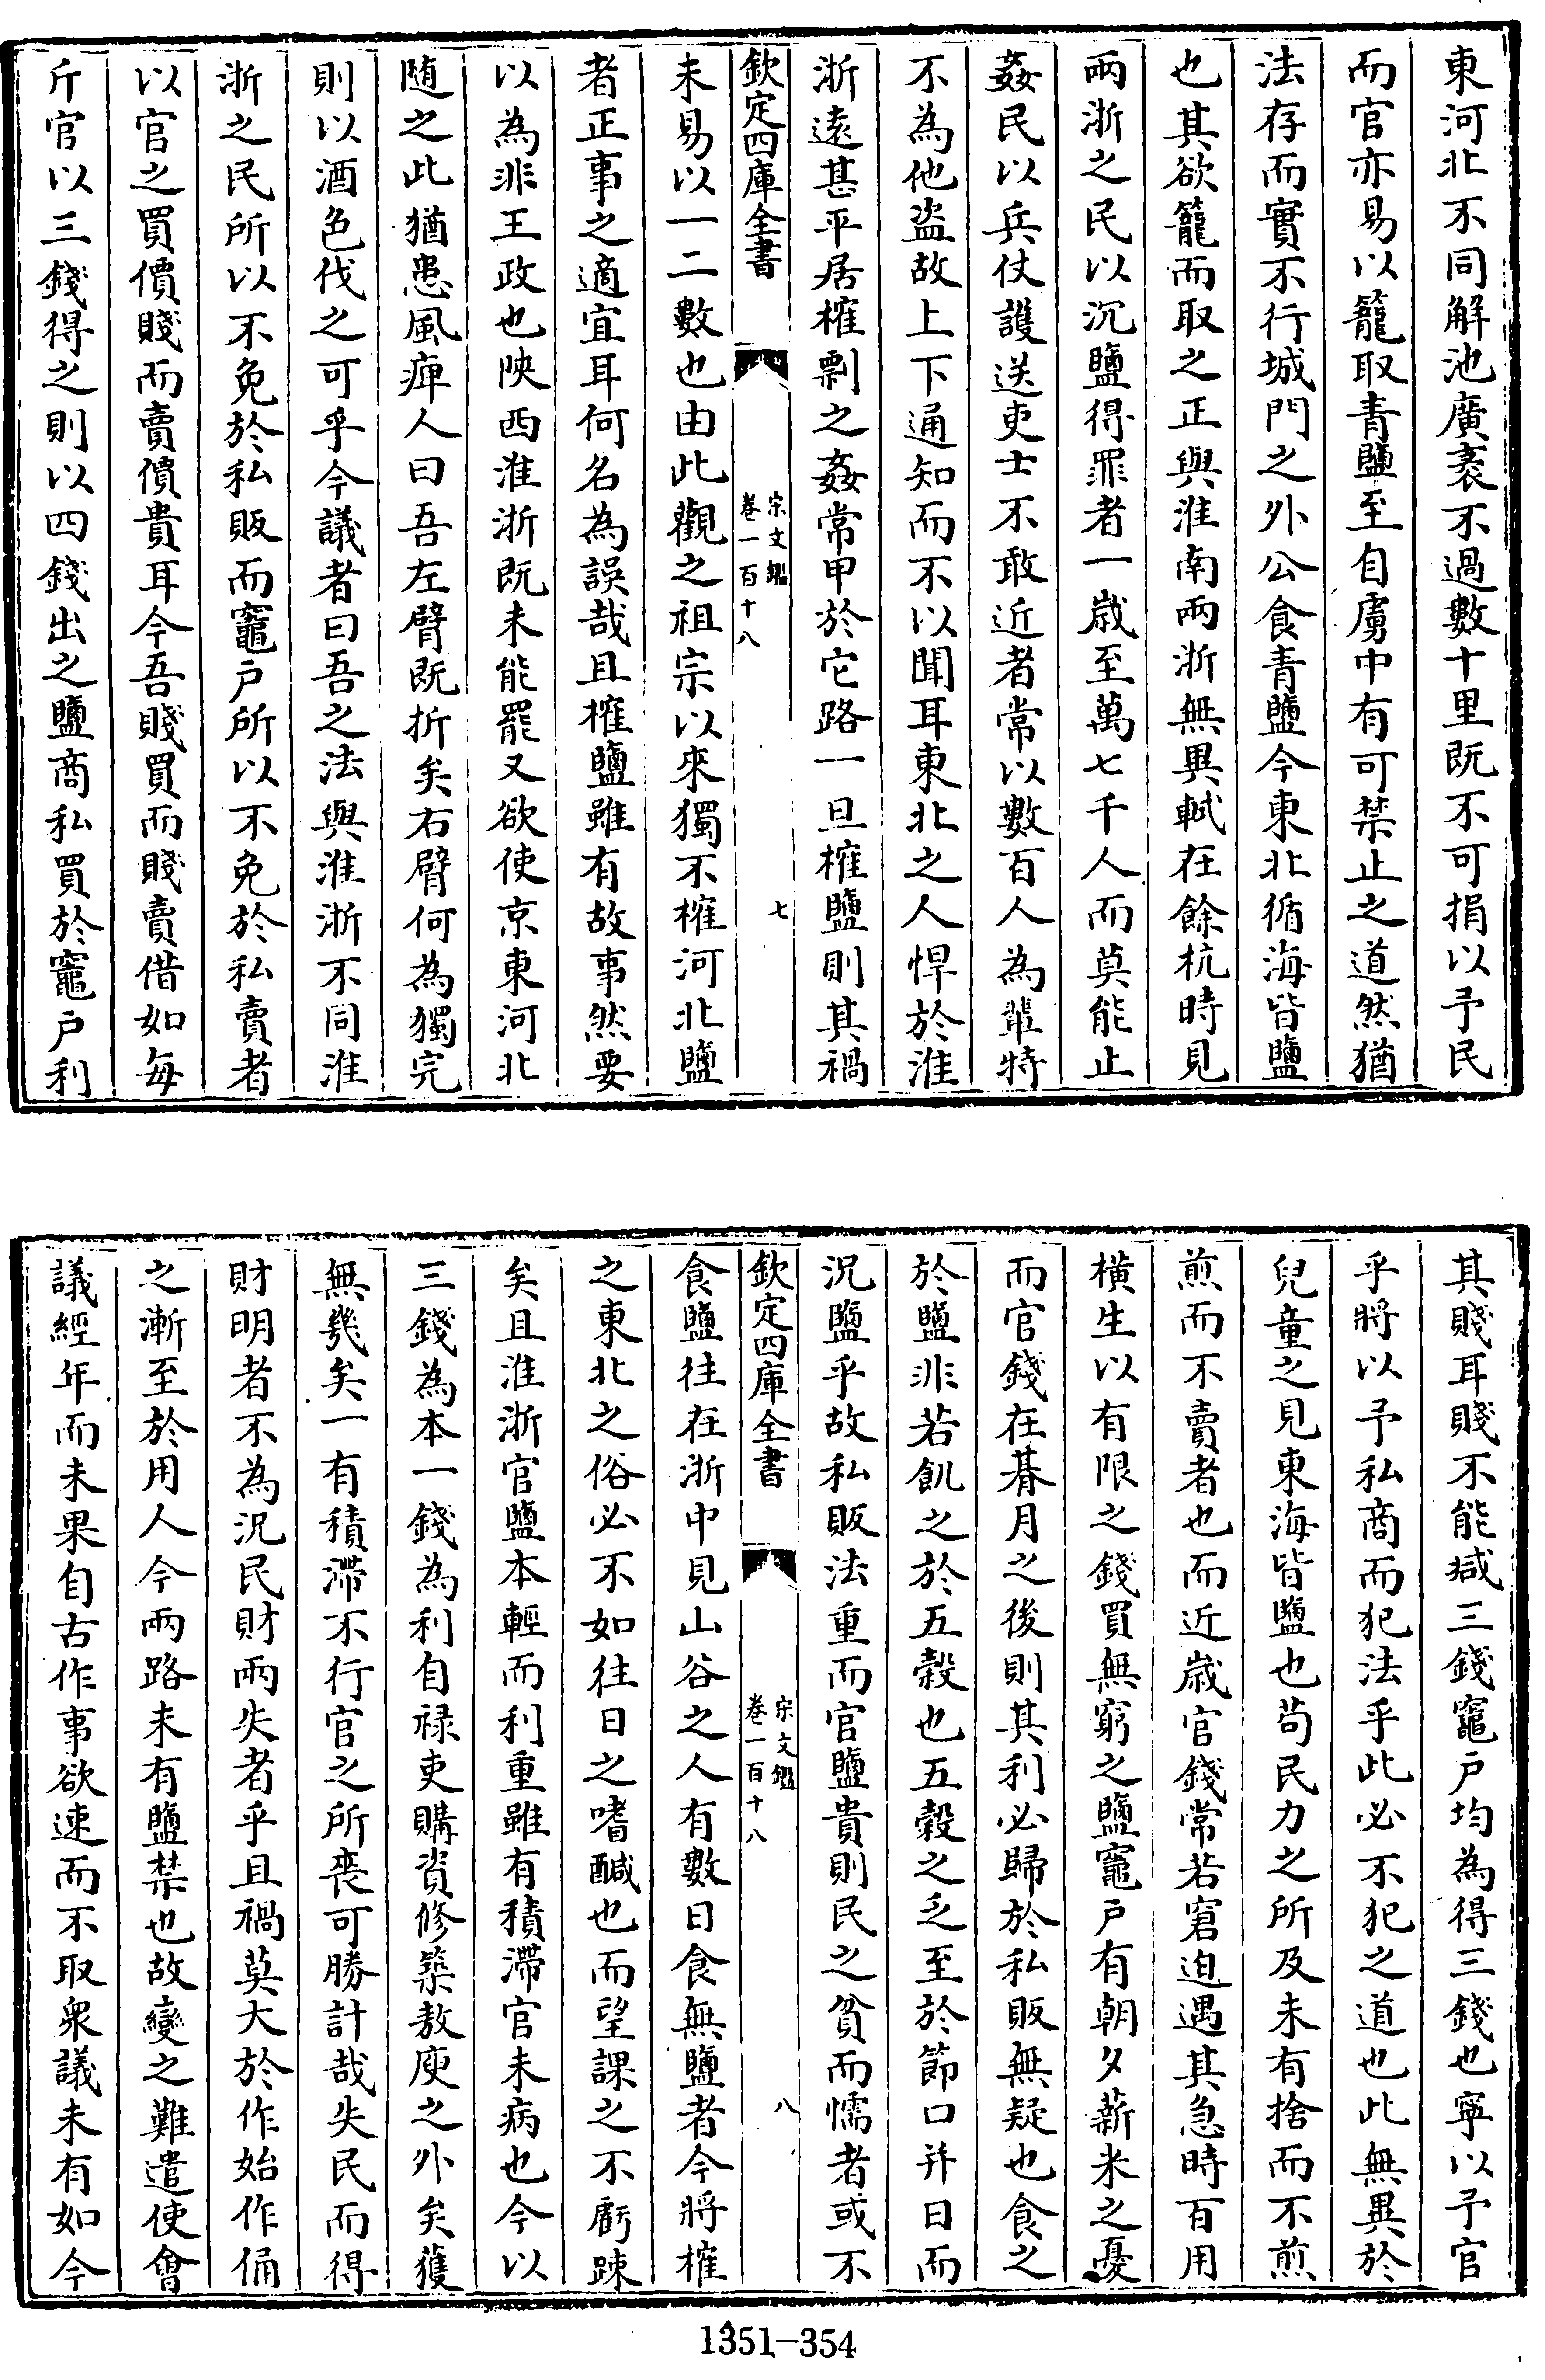 東河北不同解池廣袤不過數十里既不可捐以予民
而官亦易以籠取青鹽至自虜中有可禁止之道然猶
法存而實不行城門之外公食青鹽今東北循海皆鹽
也其欲籠而取之正與淮南兩浙無異軾在餘杭時見
兩浙之民以沉鹽得罪者一嵗至萬七千人而莫能止
姦民以兵仗護送吏士不敢近者常以數百人為輩特
不為他盜故上下通知而不以聞耳東北之人悍於淮
浙遠甚平居椎剽之姦常甲於它路一旦榷鹽則其禍
欽定四庫全書
宋文鑑
卷一百十八
七
未易以一二數也由此觀之祖宗以來獨不榷河北鹽
者正事之適宜耳何名為誤哉且榷鹽雖有故事然要
以為非王政也陜西淮浙既未能罷又欲使京東河北
随之此猶患風痺人曰吾左臂既折矣右臂何為獨完
則以酒色伐之可乎今議者曰吾之法與淮浙不同淮
浙之民所以不免於私販而竈户所以不免於私賣者
以官之買價賤而賣價貴耳今吾賤買而賤賣借如每
斤官以三錢得之則以四錢出之鹽商私買於竈户利
其賤耳賤不能減三錢竈户均為得三錢也寧以予官
乎將以予私商而犯法乎此必不犯之道也此無異於
兒童之見東海皆鹽也苟民力之所及未有捨而不煎
煎而不賣者也而近嵗官錢常若窘迫遇其急時百用
橫生以有限之錢買無窮之鹽竈户有朝夕薪米之憂
而官錢在朞月之後則其利必歸於私販無疑也食之
於鹽非若飢之於五穀也五穀之乏至於節口并日而
況鹽乎故私販法重而官鹽貴則民之貧而懦者或不
欽定四庫全書
宋文鑑
卷一百十八
八
食鹽往在浙中見山谷之人有數日食無鹽者今將榷
之東北之俗必不如往日之嗜醎也而望課之不虧踈
矣且淮浙官鹽本輕而利重雖有積滯官未病也今以
三錢為本一錢為利自禄吏購賞修築敖庾之外矣獲
無㡬矣一有積滯不行官之所丧可勝計哉失民而得
財明者不為況民財兩失者乎且禍莫大於作始作俑
之漸至於用人今兩路未有鹽禁也故變之難遣使會
議經年而未果自古作事欲速而不取衆議未有如今
1351-354